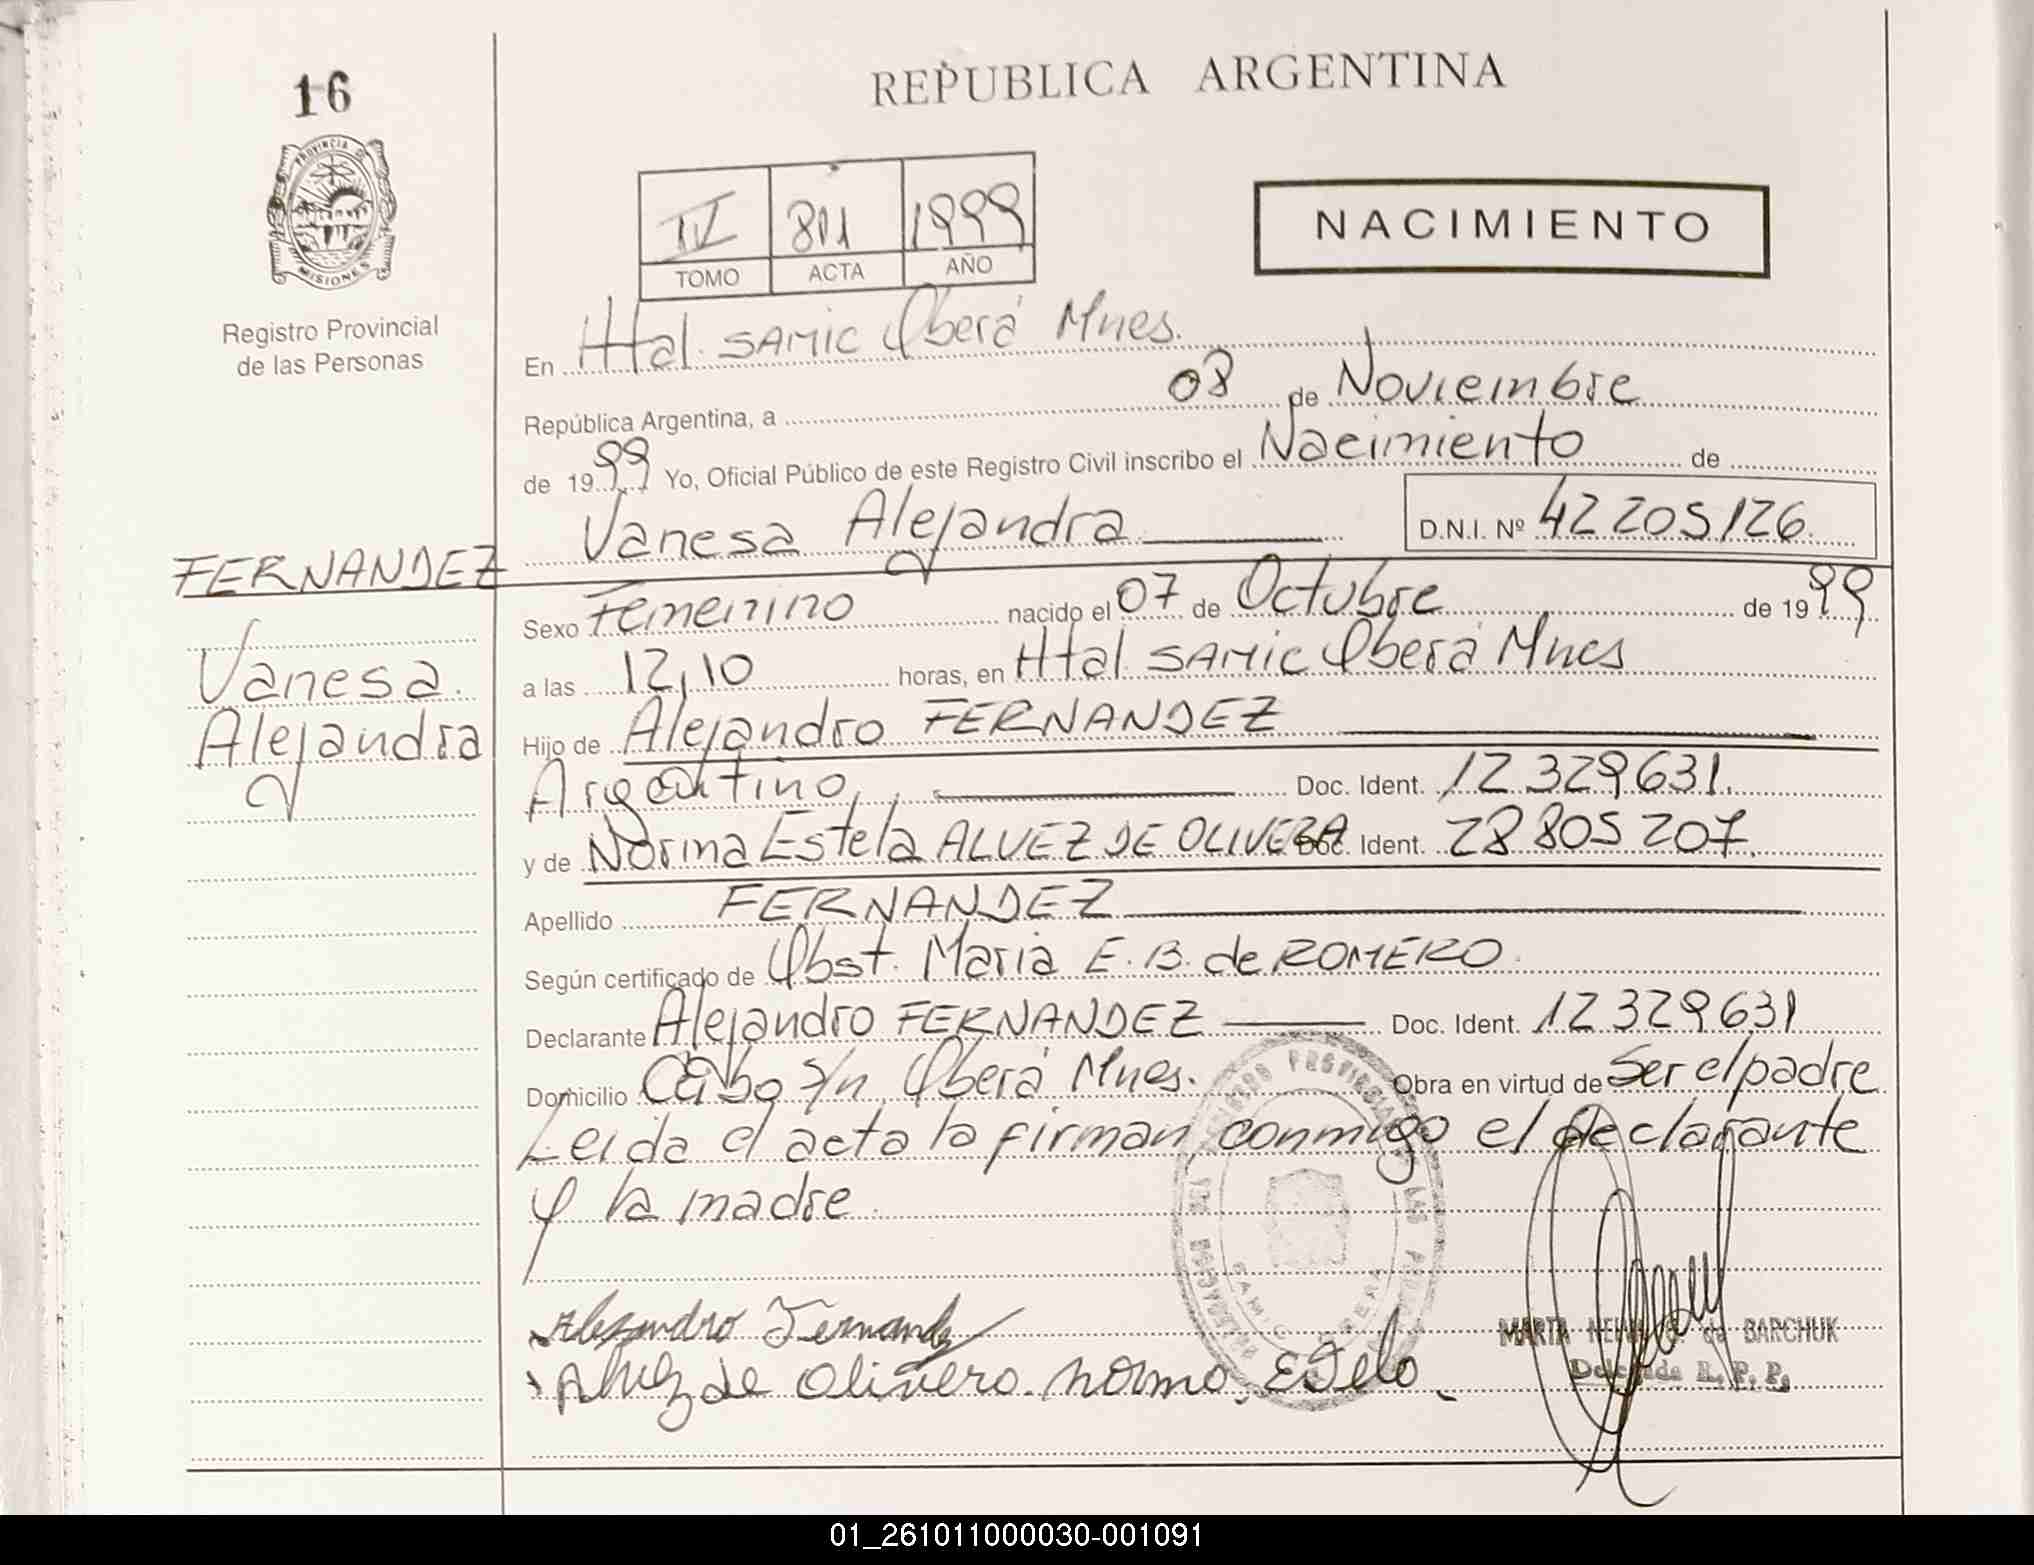 16
REPUBLICA ARGENTINA
PROVINCIA DE
MISIONES
Registro Provincial
de las Personas
IV 811 1999
TOMO ACTA AÑO
NACIMIENTO
En Htal. SAMIC Oberá Mnes.
República Argentina, a 08 de Noviembre
de 1999 Yo, Oficial Público de este Registro Civil inscribo el Nacimiento de
Vanesa Alejandra D.N.I. Nº 42 205126
FERNANDEZ
Vanesa
Alejandra
Sexo Femenino nacido el 07 de Octubre de 1999
a las 12,10 horas, en Htal. SAMIC Oberá Mnes
Hijo de Alejandro FERNANDEZ
Argentino Doc. Ident. 12 329631.
y de Norma Estela ALVEZ DE OLIVERA Doc. Ident. 28 805 207.
Apellido FERNANDEZ
Según certificado de Obst. Maria E. B. de ROMERO.
Declarante Alejandro FERNANDEZ Doc. Ident. 12 329631
Domicilio s/n Oberá Mnes. Obra en virtud de Ser el padre
Leida el acta la firman conmigo el declarante
y la madre.
Alejandro Fernandez
Alvez de Olivera Norma Estela
MARTA de BARCHUK
Delegada R. P. P.
SAMIC OBERA
01_261011000030-001091